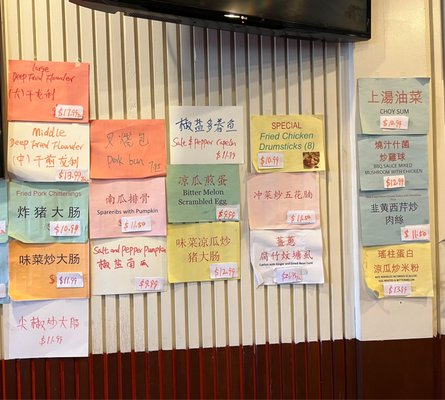 large
Deep Fried Flounder
$17.99
Middle
Deep Fried Flounder
$13.99
Fried Pork Chitterlings
炸猪大肠
$10.99
味菜炒大肠
$11.99
尖椒炒大肠
$11.99
叉烧包
Pork bun
南瓜排骨
Spareribs with Pumpkin
$11.50
Salt and Pepper Pumpkin
椒盐南瓜
$9.99
椒盐多春鱼
Salt & Pepper Capelin
$11.99
凉瓜煎蛋
Bitter Melon
Scrambled Egg
$9.99
味菜凉瓜炒
猪大肠
$12.99
SPECIAL
Fried Chicken
Drumsticks (8)
$10.99
冲菜炒五花腩
腐竹炆塘虱
上湯油菜
CHOY SUM
$10.99
燒汁什菌
炒雞球
BBQ SAUCE MIXED
MUSHROOM WITH CHICKEN
$12.99
韭黄西芹炒
肉絲
瑤柱蛋白
涼瓜炒米粉
$13.99